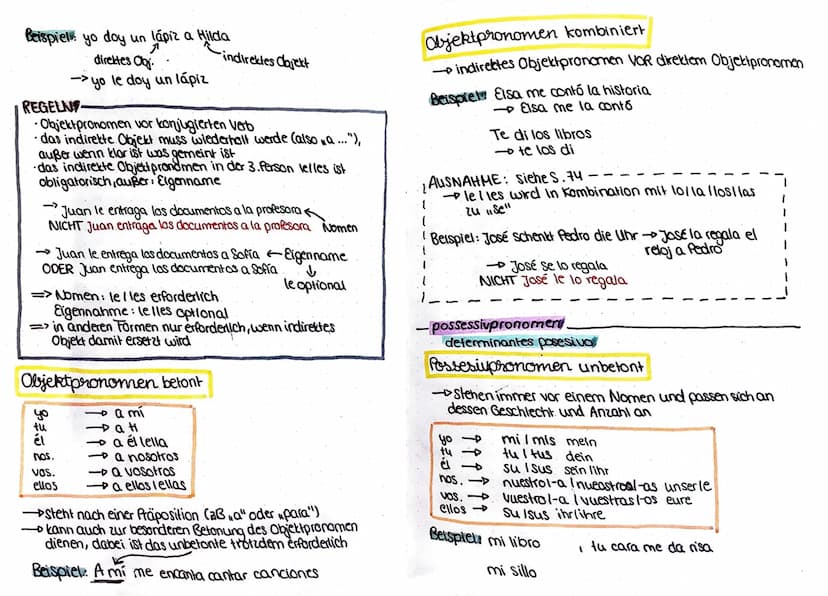 Beispiel: yo doy un lápiz a Hilda
direktes Obj.
indirektes Objekt
→ yo le doy un lápiz
REGELN
· Objektpronomen vor konjugierten Verb
· das indirekte Objekt muss wiederholt werde (also „a ..."),
außer wenn klar ist was gemeint ist
· das indirekte Objektpronomen in der 3. Person le/les ist
obligatorisch, außer: Eigenname
→ Juan le entraga los documentos a la profesora
NICHT Juan entraga los documentos a la profesora Nomen
→ Juan le entrega los documentos a Sofía ← Eigenname
ODER Juan entrega los documentos a Sofía
le optional
=> Nomen: le/les erforderlich
Eigenname: le/les optional
=> in anderen Formen nur erforderlich, wenn indirektes
Objekt damit ersetzt wird
Objektpronomen betont
yo → a mí
tu → a ti
él → a él/ella
nos. → a nosotros
vos. → a vosotros
ellos → a ellos/ellas
→ steht nach einer Präposition (zB „a" oder „para")
→ kann auch zur besonderen Betonung des Objektpronomen
dienen, dabei ist das unbetonte trotzdem erforderlich
Beispiel: A mí me encanta cantar canciones
Objektpronomen kombiniert
→ indirektes Objektpronomen VOR direktem Objektpronomen
Beispiel: Elsa me contó la historia
→ Elsa me la contó
Te di los libros
→ te los di
AUSNAHME: siehe S. 74
→ le/les wird in Kombination mit lo/la/los/las
zu „se"
Beispiel: José schenkt Pedro die Uhr → José la regala el
reloj a Pedro
→ José se lo regala
NICHT José le lo regala
possessivpronomen
determinantes posesivos
Possesivpronomen unbetont
→ Stehen immer vor einem Nomen und passen sich an
dessen Geschlecht und Anzahl an
yo → mi/mis mein
tu → tu/tus dein
él → su/sus sein/ihr
nos. → nuestro/-a/nuestros/-as unser/e
vos. → vuestro/-a/vuestras/-os eure
ellos → su/sus ihr/ihre
Beispiel: mi libro , tu cara me da risa
mi sillo